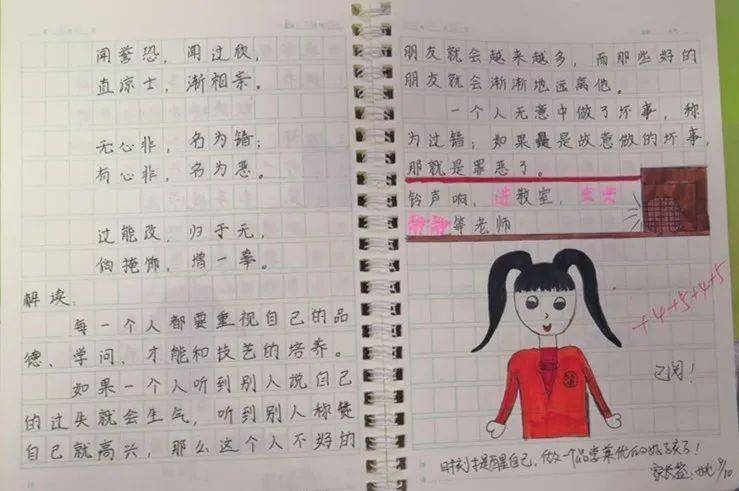 闻誉恐，闻过欣，
直凉士，渐相亲。
无心非，名为错；
有心非，名为恶。
过能改，归于无，
倘掩饰，增一辜。
解读：
每一个人都要重视自己的品
德、学问、才能和技艺的培养。
如果一个人听到别人说自己
的过失就会生气，听到别人称赞
自己就高兴，那么这个人不好的
朋友就会越来越多，而那些好的
朋友就会渐渐地远离他。
一个人无意中做了坏事，称
为过错；如果是故意做的坏事，
那就是罪恶了。
铃声响，进教室，
静静等老师
+4+5+4+5
已阅！
时刻提醒自己，做一个品学兼优的好孩子！
家长签：
9/10